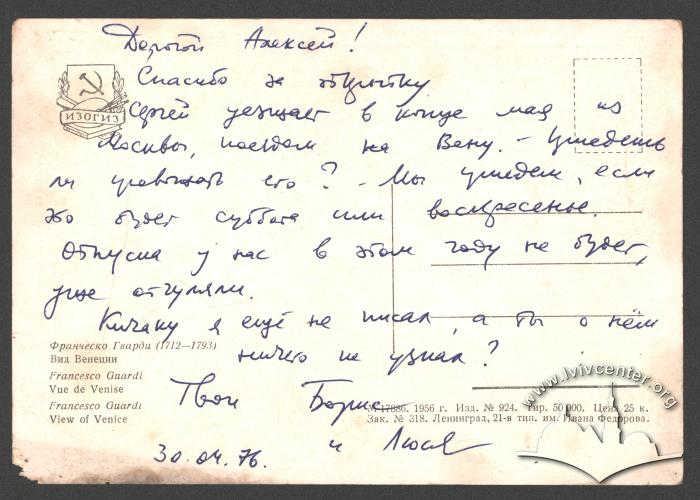 Дорогой Алексей!
Спасибо за открытку
Сергей уезжает в конце мая из
Москвы, поездом на Вену. – Приедешь
ли провожать его? – Мы приедем, если
это будет суббота или воскресенье.
Отпуска у нас в этом году не будет,
уже отгуляли.
Кичаку я ещё не писал, а ты о нём
ничего не узнал?
Твои Борис
и Люся
30.04.76.
ИЗОГИЗ
Франческо Гварди (1712—1793)
Вид Венеции
Francesco Guardi
Vue de Venise
Francesco Guardi
View of Venice
М 17886. 1956 г. Изд. № 924. Тир. 50 000. Цена 25 к.
Зак. № 318. Ленинград, 21-я тип. им. Ивана Федорова.
www.lvivcenter.org